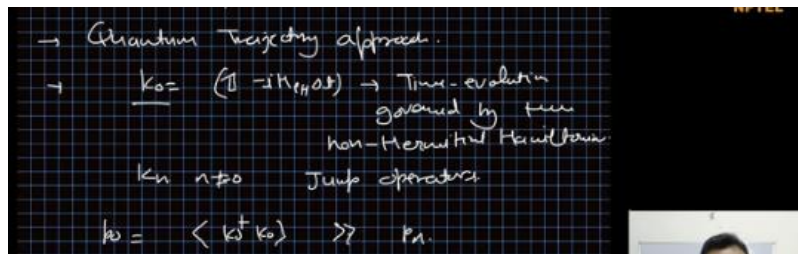 NPTEL
→ Quantum Trajectory approach.
→ K₀ = (𝟙 - i H_eff Δt) → Time-evolution
governed by the
non-Hermitian Hamiltonian.
Kₙ n≠0 Jump operators
p₀ = ⟨K₀† K₀⟩ ≫ pₙ.